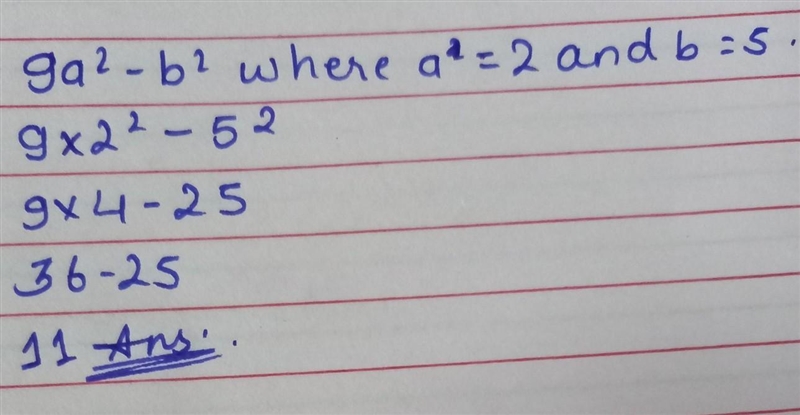 9a² - b² where a² = 2 and b = 5.
9×2² - 5²
9×4 - 25
36 - 25
11 Ans.